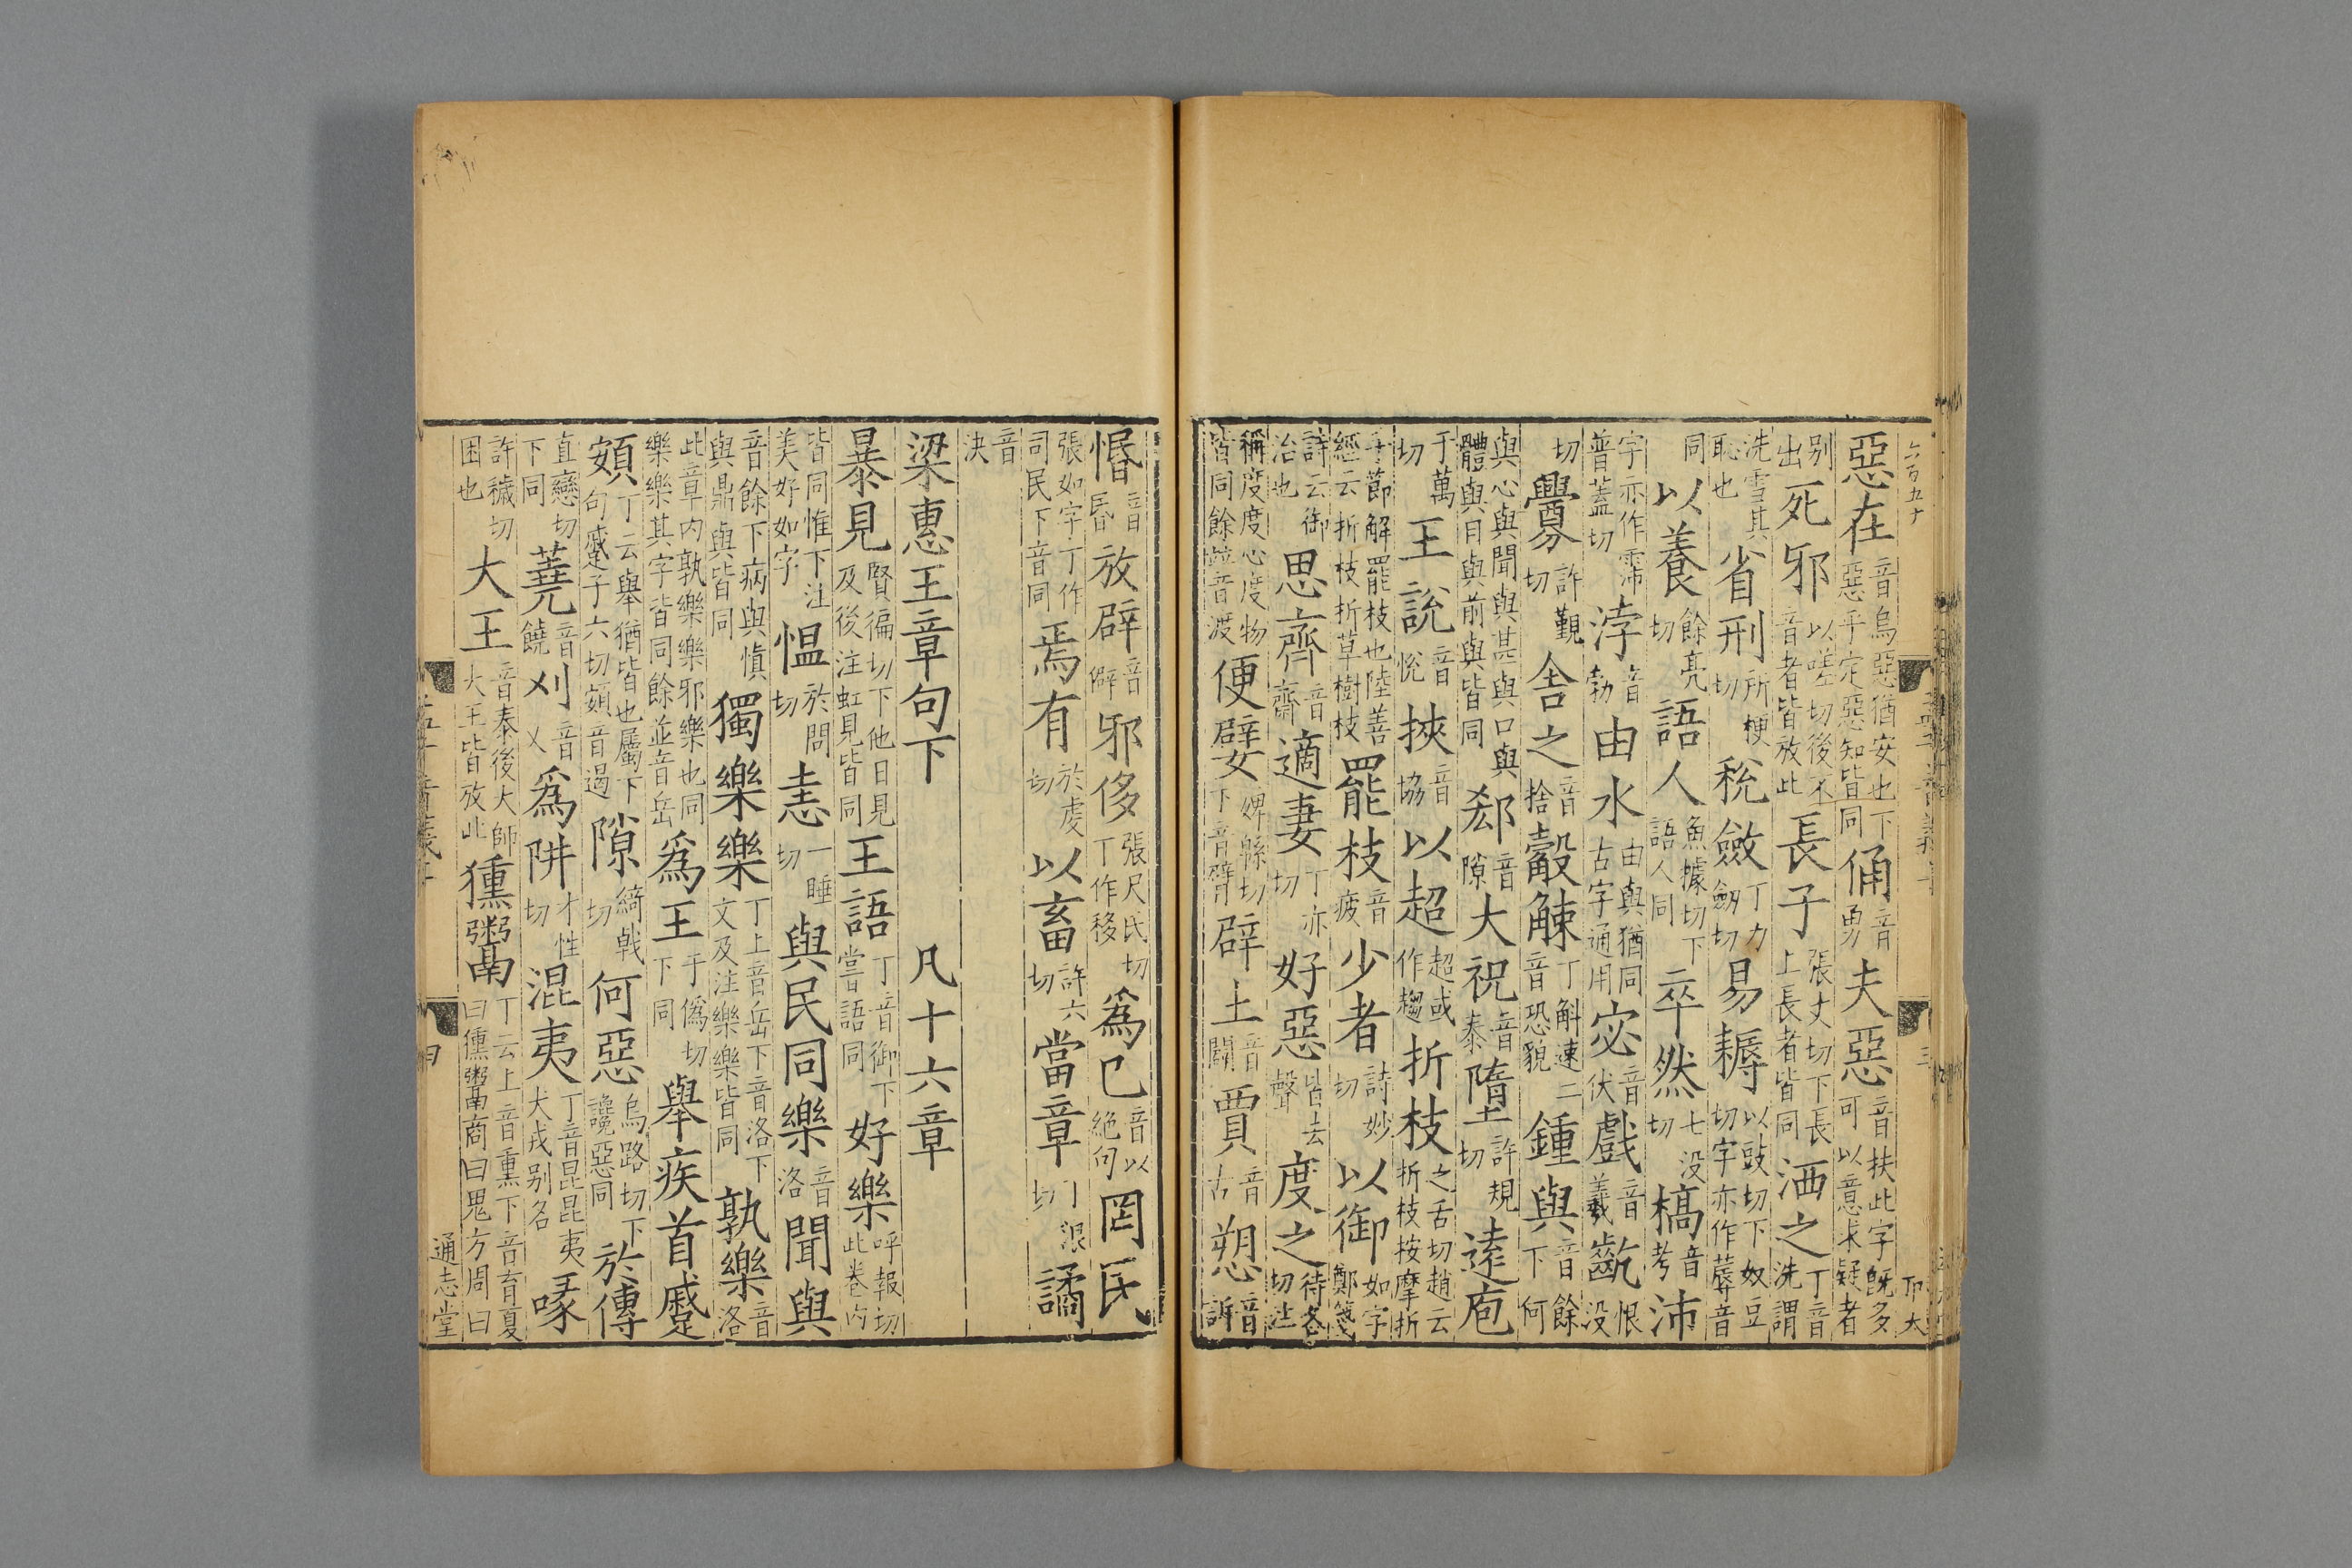 六百五十
惡在音烏惡猶安也下惡乎定惡知皆同俑音勇夫惡音扶此字旣多可以意求疑者
别出死邪以嗟切後不音者皆放此長子張丈切下長上長者皆同洒之丁音洗謂
洗雪其恥也省刑所梗切稅斂丁力劒切易耨以豉切下奴豆切字亦作蓐音
同以養餘亮切語人魚據切下語人同卒然七没切槁音考沛
字亦作霈普蓋切浡音勃由水由與猶同古字通用宓音伏戲音羲齕恨没
切釁許覲切舍之音捨觳觫丁斛速二音恐貌鍾與音餘下何
與心與聞與甚與口與體與目與前與皆同郄音隙大祝音泰墮許規切逺庖
于萬切王說音悅挾音協以超超或作趨折枝之舌切趙云折枝按摩折
手節解罷枝也陸善經云折枝折草樹枝罷枝音疲少者詩妙切以御如字鄭箋
詩云御治也思齊音齋適妻丁亦切好惡皆去聲度之待各切注
稱度度心度物皆同餘並音渡便嬖婢緜切下音臂辟土音闢賈音古愬音訴
惛音昏放辟音僻邪侈張尺氏切丁作移爲已音以絶句罔民
張如字丁作司民下音同焉有於虔切以畜許六切當章丁浪切譎
音決
梁惠王章句下 凡十六章
暴見賢徧切下他日見及後注虹見皆同王語丁音御下嘗語同好樂呼報切此卷内
皆同惟下注美好如字愠於問切恚一睡切與民同樂音洛聞與
音餘下病與愼與鼎與皆同獨樂樂丁上音岳下音洛下文及注樂樂皆同孰樂音洛
此章内孰樂樂邪樂也同樂樂其字皆同餘並音岳爲王于僞切下同舉疾首蹙
頞丁云舉猶皆也屬下句蹙子六切頞音遏隙綺戟切何惡烏路切下讒惡同於傳
直戀切下同蕘音饒刈音乂爲阱才性切混夷丁音昆昆夷犬戎别名喙
許穢切困也大王音泰後大師大王皆放此獯鬻丁云上音熏下音育夏曰獯鬻商曰鬼方周曰
通志堂